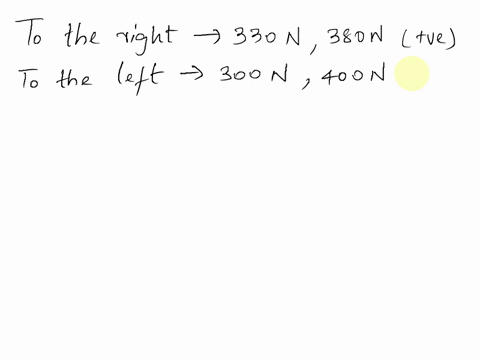 To the right → 330 N, 380N (+ve)
To the left → 300 N, 400N